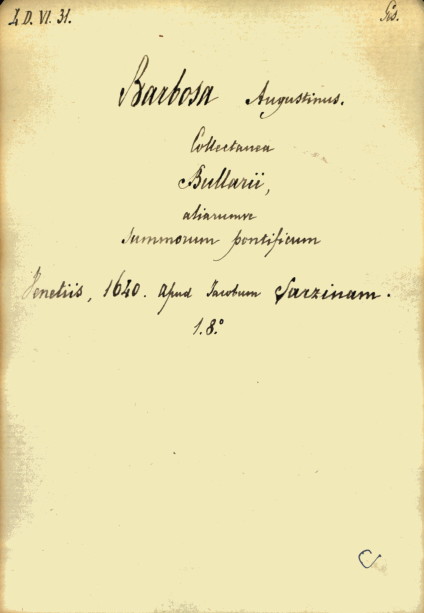 L D. VI. 31. Gis.
Barbosa Augustinus.
Collectanea
Bullarii,
aliarumve
summorum pontificum
Venetiis, 1640. apud Jacobum Sarzinam.
1.8.°
C